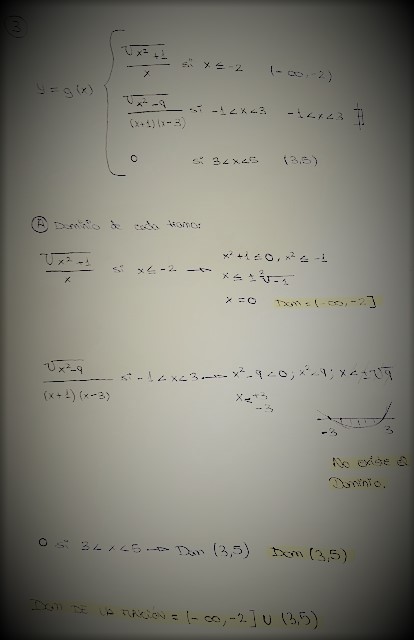 3
y = g(x)
√x²+1 / x si x ≤ -2 (-∞,-2)
√x²-9 / (x+1)(x-3) si -1<x<3 -1<x<3
0 si 3<x<5 (3,5)
A Dominio de cada tramo:
√x²+1 / x si x≤-2 → x²+1≤0, x²≤-1
x ≤ ±²√-1
x=0 Dom = (-∞,-2]
√x²-9 / (x+1)(x-3) si -1<x<3 → x²-9<0; x²<9; x<±√9
x≤ +3 -3
-3 3
No existe el
Dominio.
0 si 3<x<5 → Dom (3,5) Dom (3,5)
DOM DE LA FUNCIÓN = (-∞,-2] U (3,5)